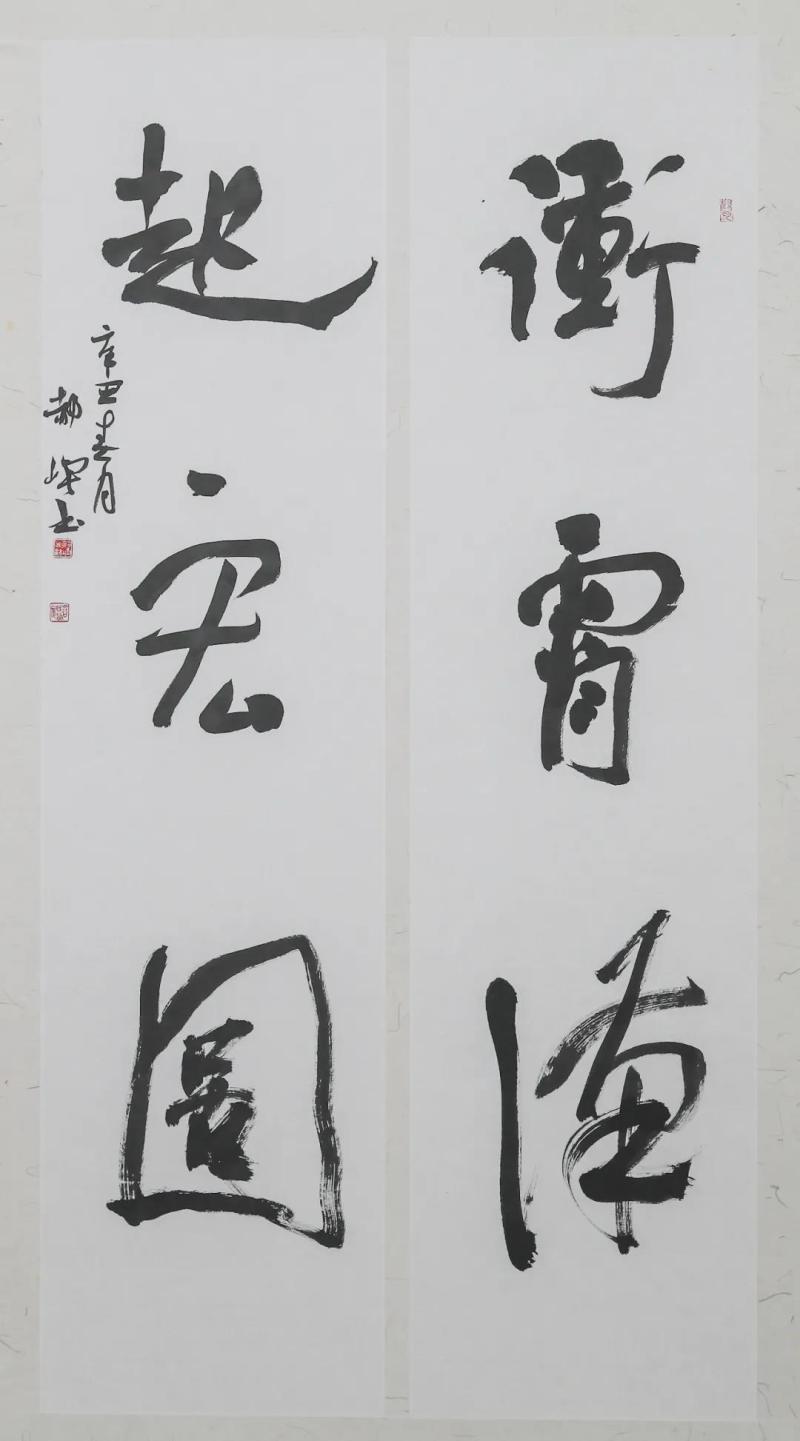 衝霄漢
起宏圖
辛丑春月
郝 書